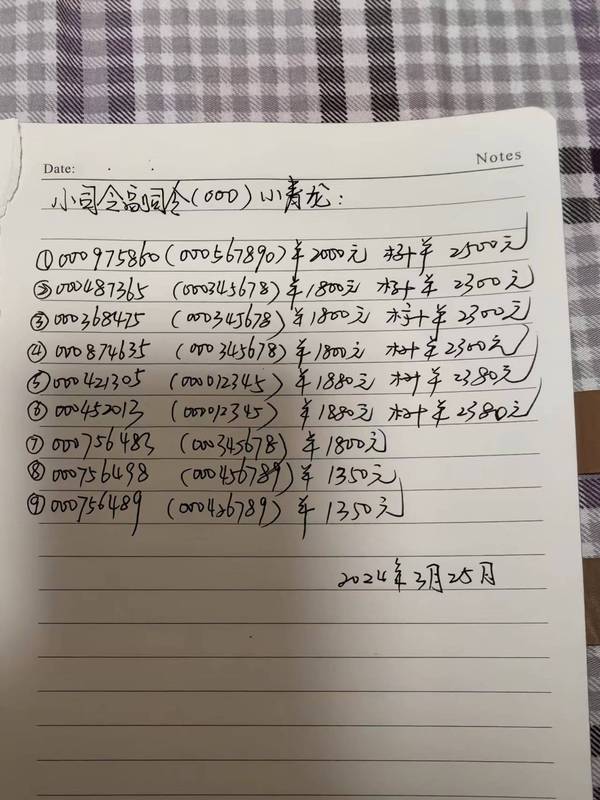 Notes
Date: . .
小司令高司令(000)小青龙:
①000975860(000567890)¥2000元 标十¥ 2500元
②000487365 (000345678)¥1800元 标十¥ 2300元
③000368475 (000345678)¥1800元 标十¥ 2300元
④000874635 (000345678)¥1800元 标十¥2300元
⑤000421305 (000012345)¥1880元 标十¥2380元
⑥000452013 (000012345)¥1880元 标十¥2380元
⑦000756483 (000345678)¥1800元
⑧000756498 (000456789)¥ 1350元
⑨000756489 (000426789)¥ 1350元
2024年3月25日